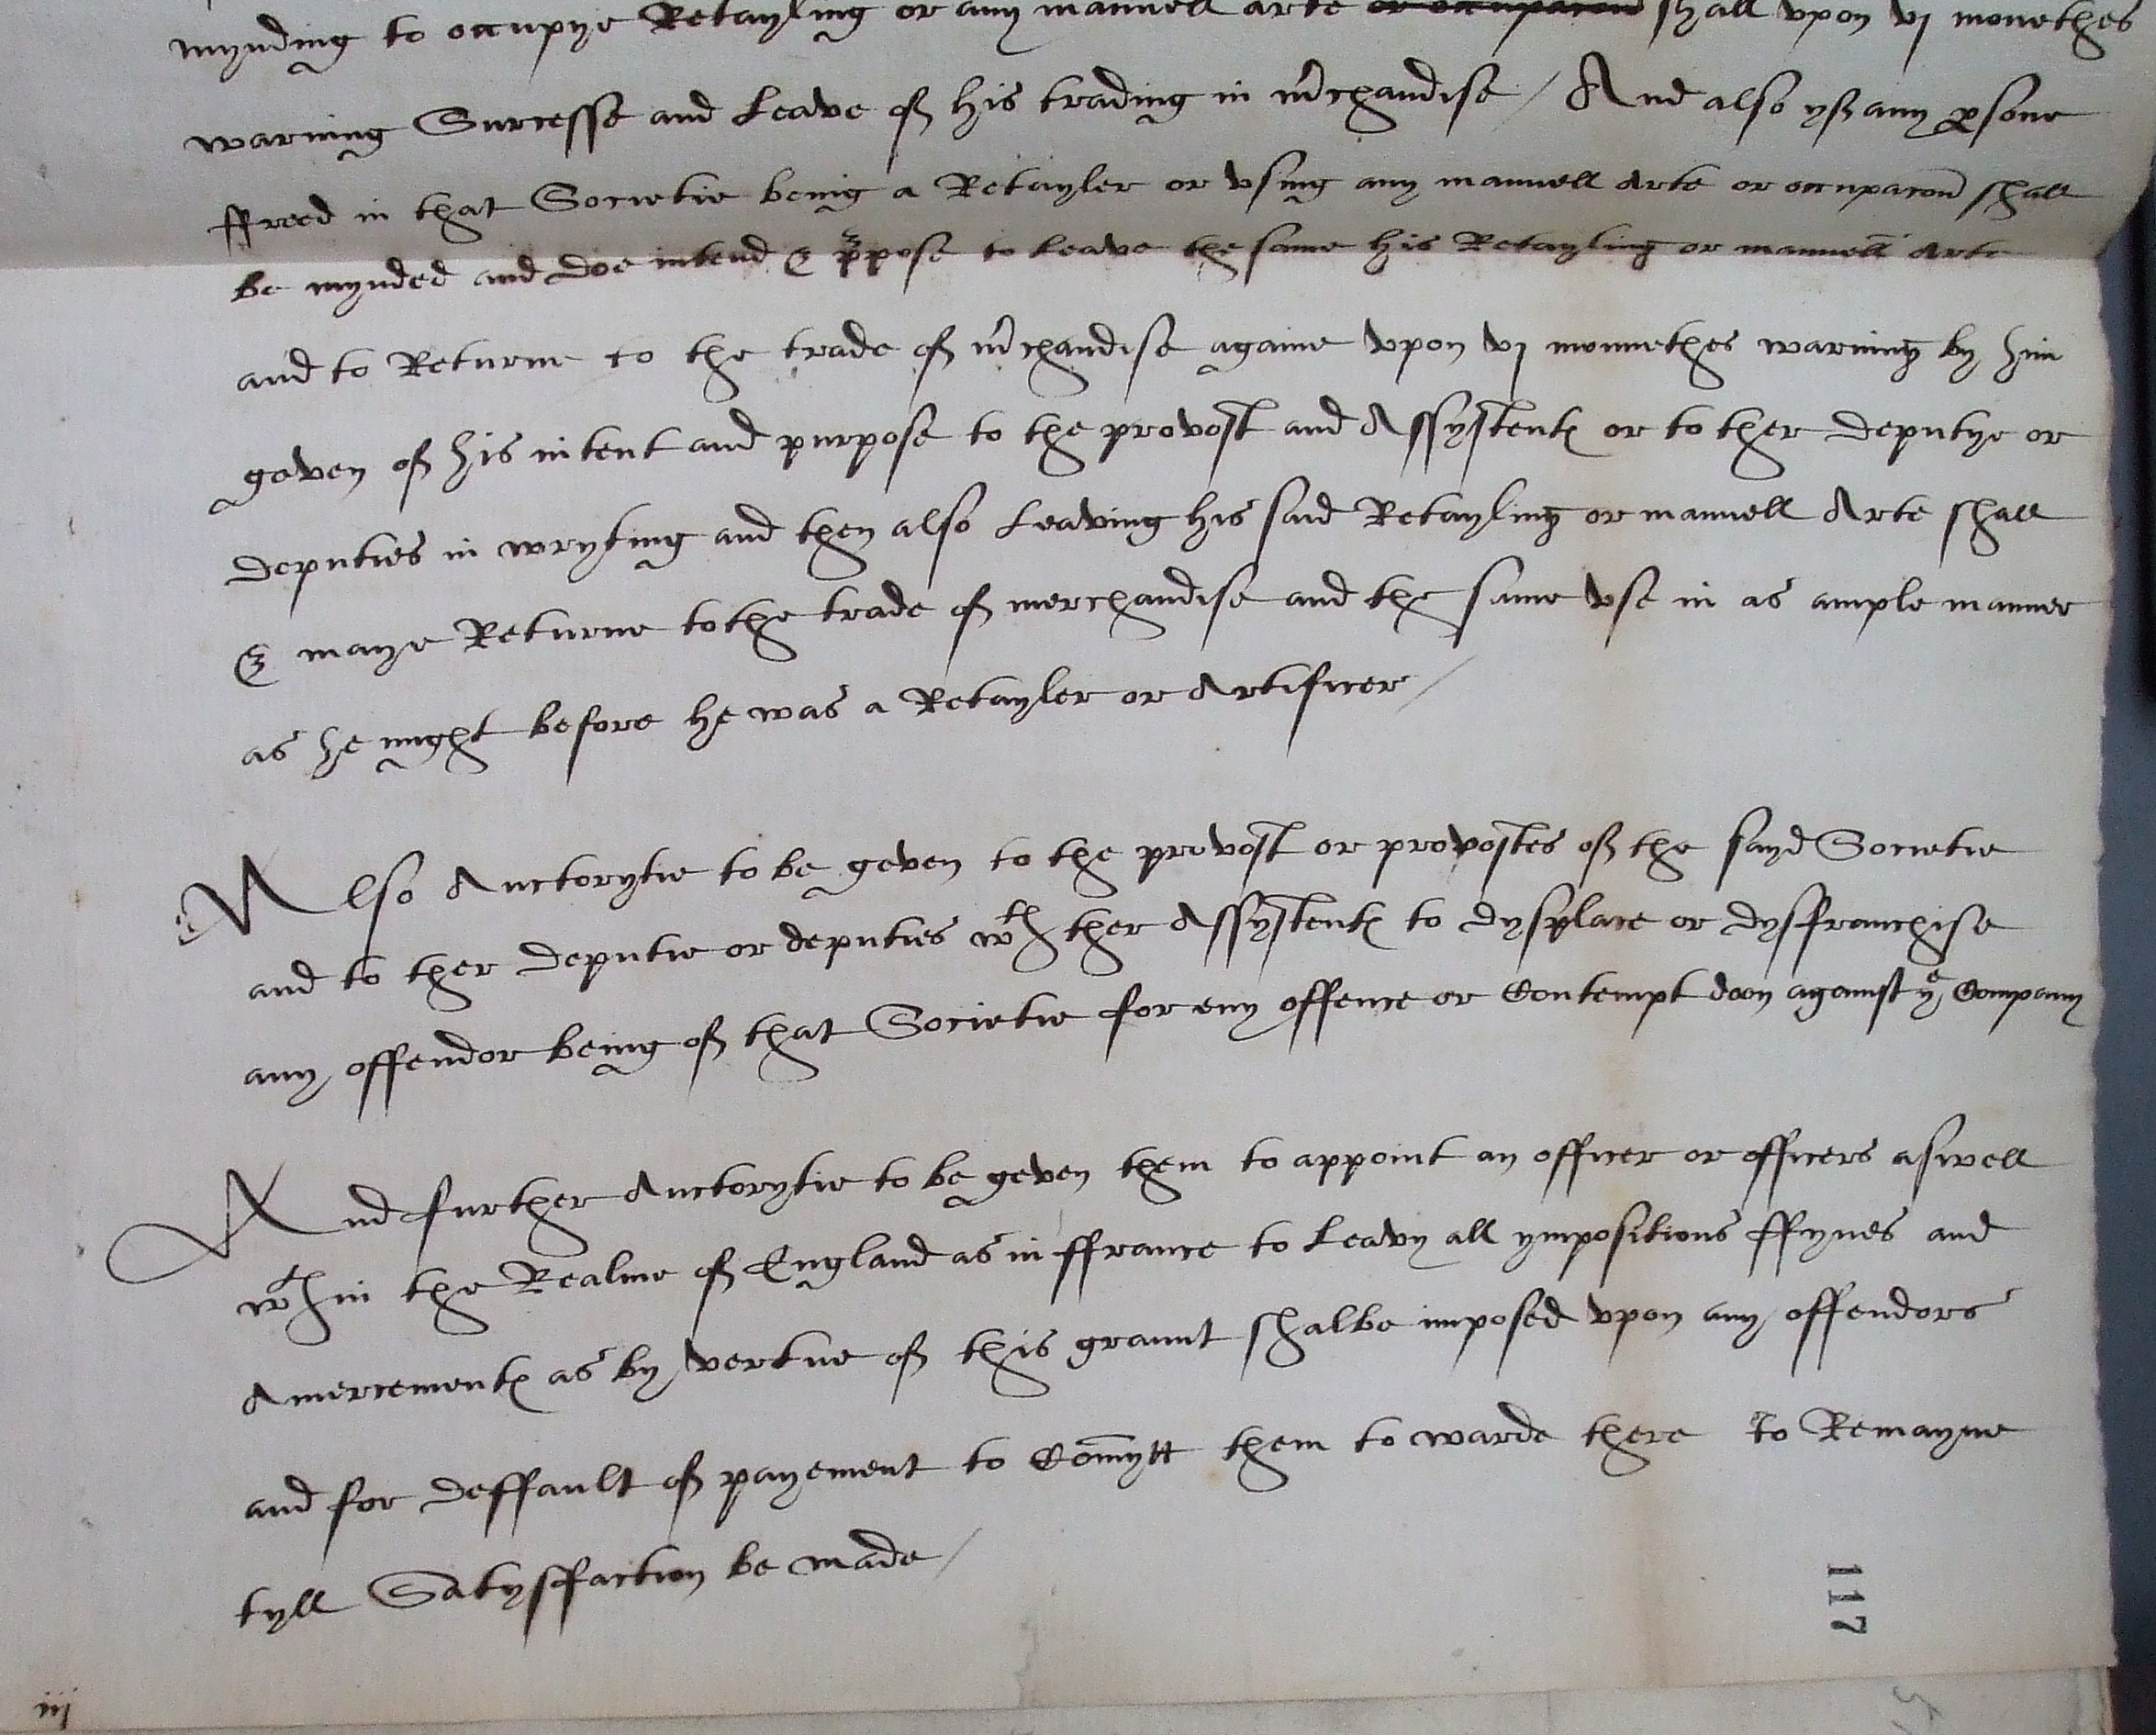 mynding to occupye Retayling or any manuell arte or occupacon shall vpon vj monethes
warning Surcesse and Leave of his trading in m̃chandise / And also yf any p̱sone
ffreed in that Societie being a Retayler or vsing any manuell Arte or occupacon̄ shall
be mynded and doe intend & p̱pose to Leave the same his Retayling or manuell Arte
and to Returne to the trade of m̃chandise againe vpon vj monnethes warning by him
geven of his intent and purpose to the provost and Assystentℯ or to ther deputye or
deputies in wryting and then also Leaving his said Retayling or manuell Arte shall
& maye Returne to the trade of merchandise and the same vse in as ample manner
as he might before he was a Retayler or Artificer /
Also Auctorytie to be geven to the provost or provostes of the sayd Societie
and to ther deputie or deputies wᵗʰ ther Assystentℯ to dysplace or dysfranchise
any offendor being of that Societie for eny offence or Contempt doon against yᵉ Company
And further Auctorytie to be geven them to appoint an officer or officers aswell
wᵗʰin the Realme of England as in ffrance to Leavy all ympositions ffynes and
Amercementℯ as by vertue of this graunt shalbe imposed vpon any offendors
and for deffault of payement to Com̄ytt them to warde there to Remayne
tyll Satysffaction be made /
117
iij